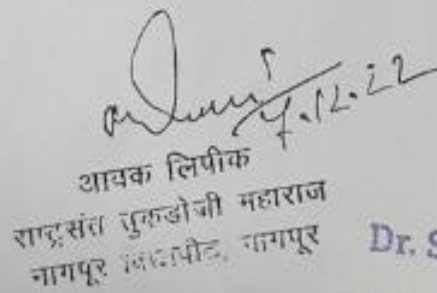 7.12.22
आवक लिपीक
राष्ट्रसंत तुकडोजी महाराज
नागपूर विद्यापीठ, नागपूर
Dr. S